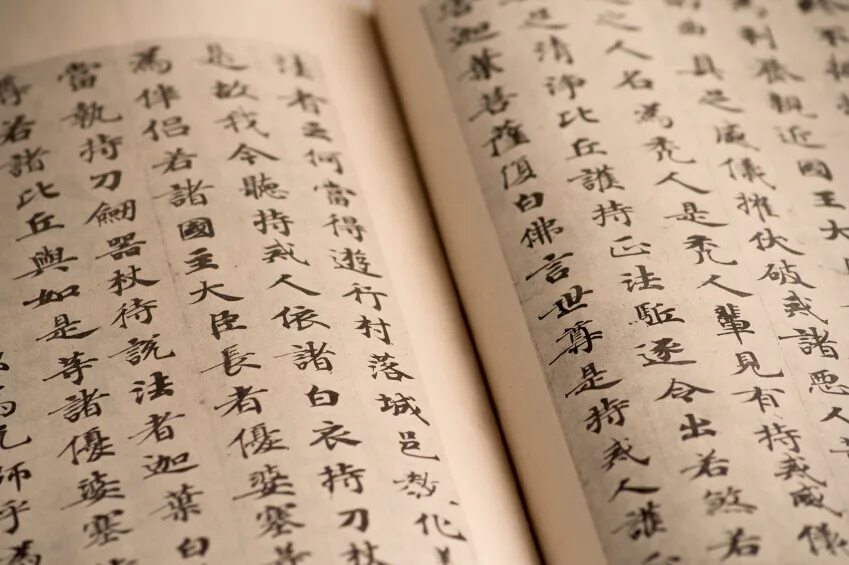 為利養親近國王大
具足威儀摧伏破戒諸惡人
之人名為禿人是禿人輩見有持戒威儀
具足清淨比丘護持正法駈逐令出若煞若
迦葉菩薩復白佛言世尊是持戒人護
法者云何當得遊行村落城邑教化
是故我今聽持戒人依諸白衣持刀杖
為伴侶若諸國主大臣長者優婆塞等
當執持刀劒器杖侍說法者迦葉白
尊若諸比丘與如是等諸優婆塞
師乎為